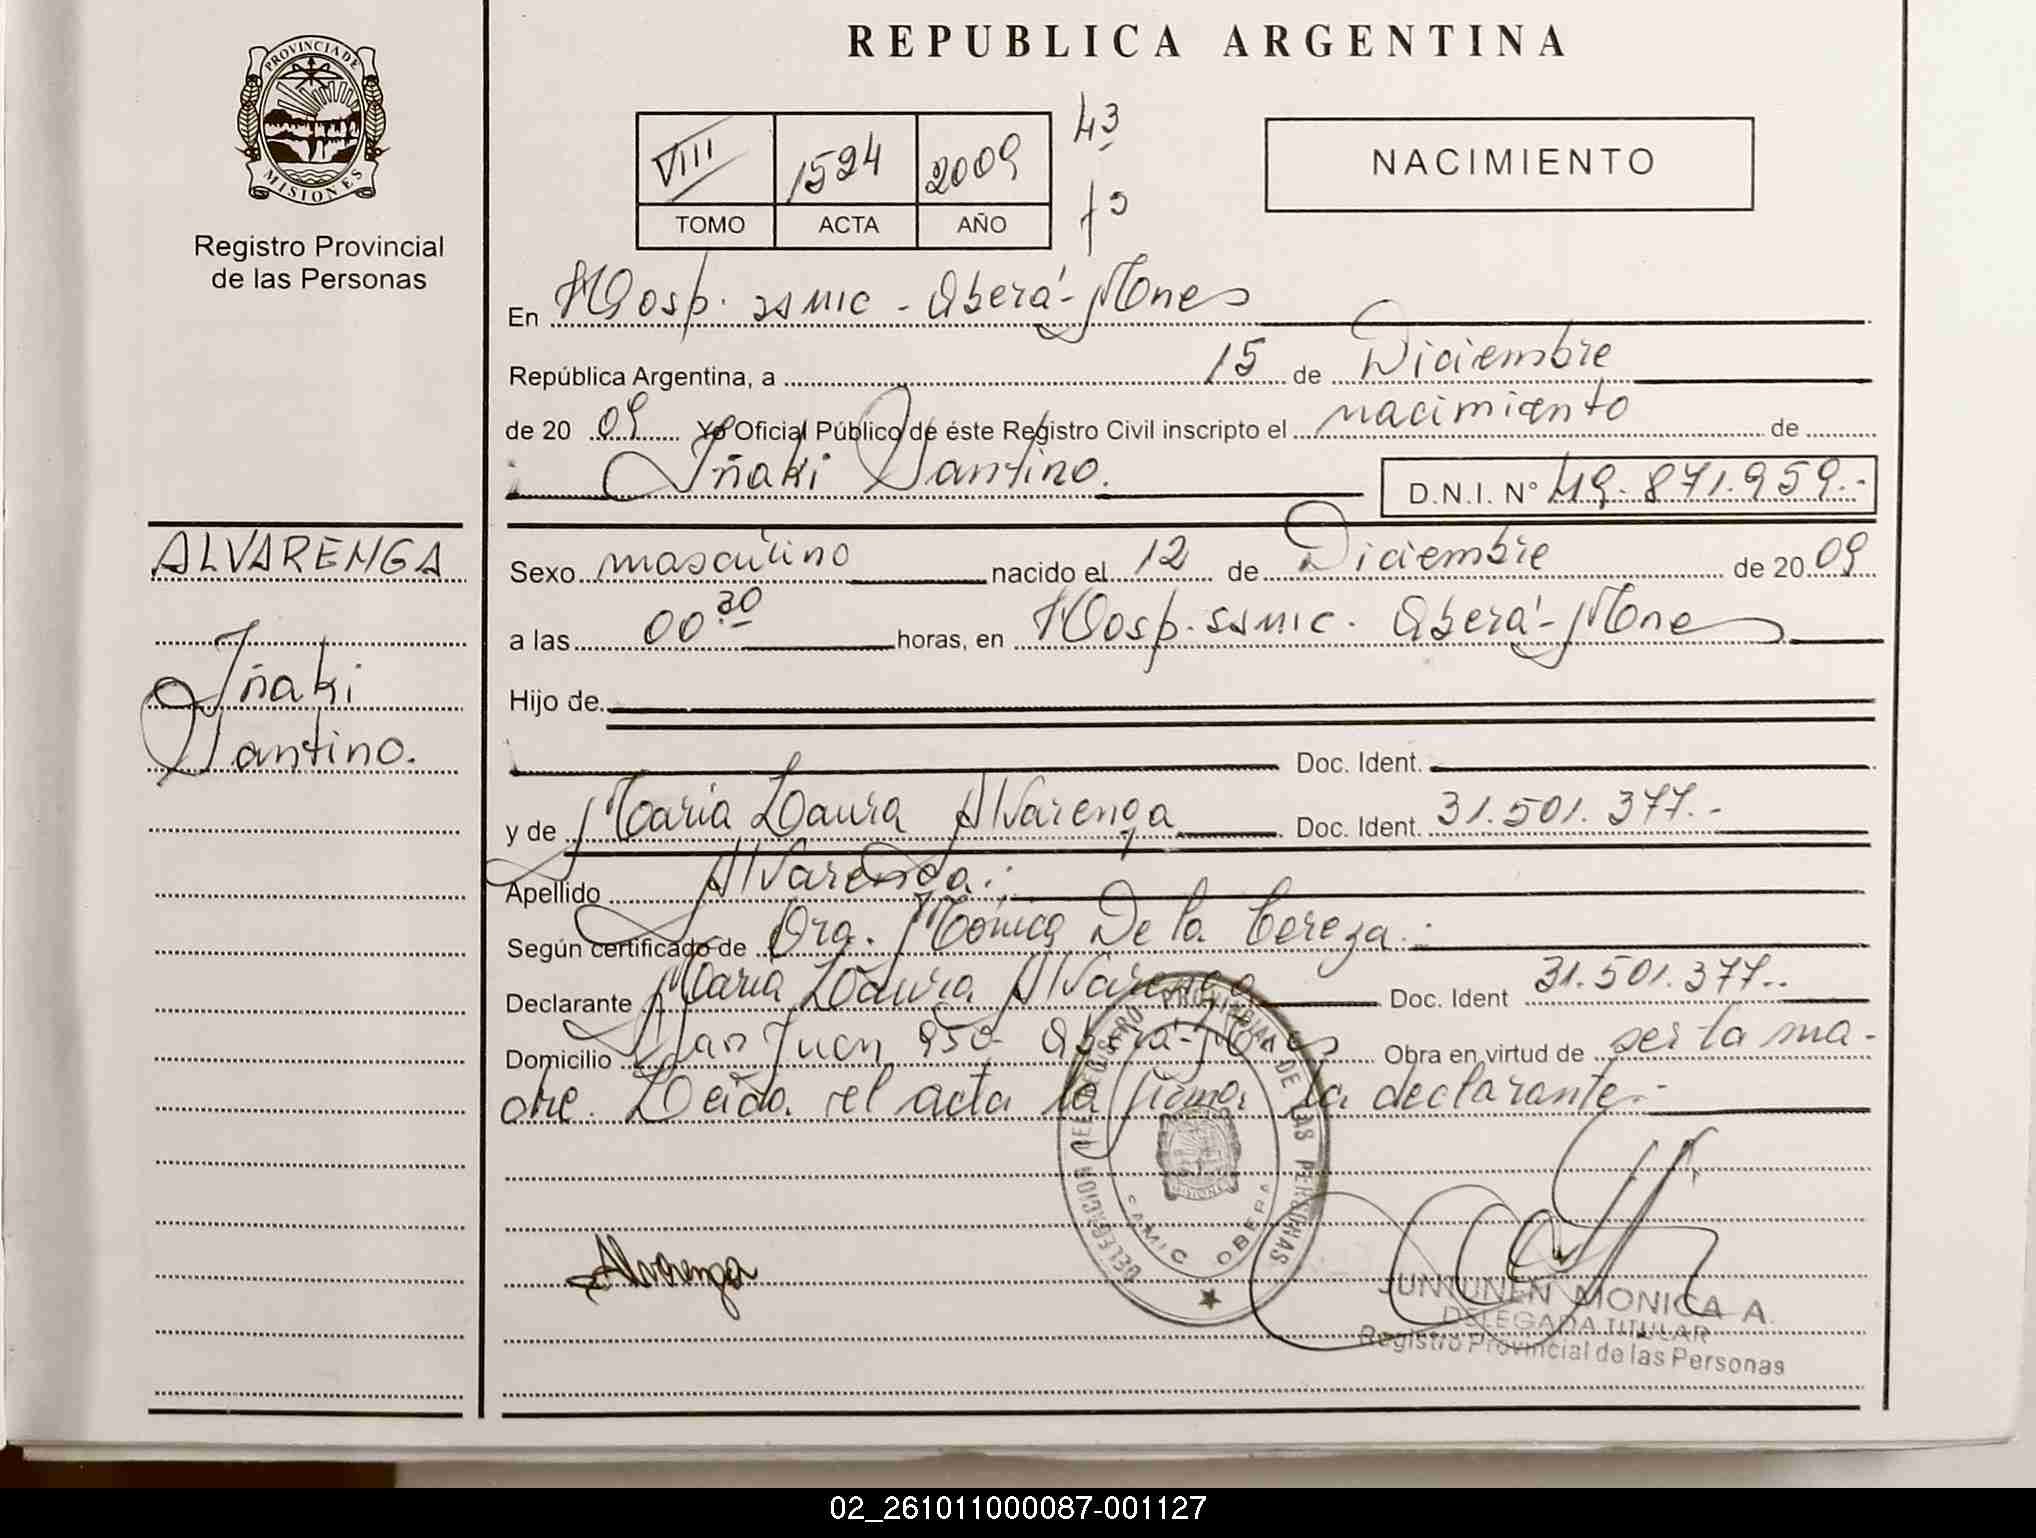 REPUBLICA ARGENTINA
PROVINCIA DE
MISIONES
Registro Provincial
de las Personas
VIII 1524 2009 43
TOMO ACTA AÑO
NACIMIENTO
En Hosp. ssmic - Oberá - Mnes
República Argentina, a 15 de Diciembre
de 20 09 Yo Oficial Público de éste Registro Civil inscripto el nacimiento de
Iñaki Santino. D.N.I. Nº 49.871.959.-
ALVARENGA
Iñaki
Santino.
Sexo masculino nacido el 12 de Diciembre de 20 09
a las 00 30 horas, en Hosp. ssmic. Oberá - Mnes
Hijo de
Doc. Ident.
y de Maria Laura Alvarenga Doc. Ident. 31.501.377.-
Apellido Alvarenga.-
Según certificado de Dra. Mónica De la Cereza.-
Declarante Maria Laura Alvarenga Doc. Ident 31.501.377..
Domicilio San Juan 950 Oberá - Mnes Obra en virtud de ser la ma-
dre. Leída el acta la firma la declarante.-
DELEGACION DEL REGISTRO PROVINCIAL DE LAS PERSONAS
SAMIC OBERA
MISIONES
Alvarenga
JUNTUNEN MONICA A.
DELEGADA TITULAR
Registro Provincial de las Personas
02_261011000087-001127